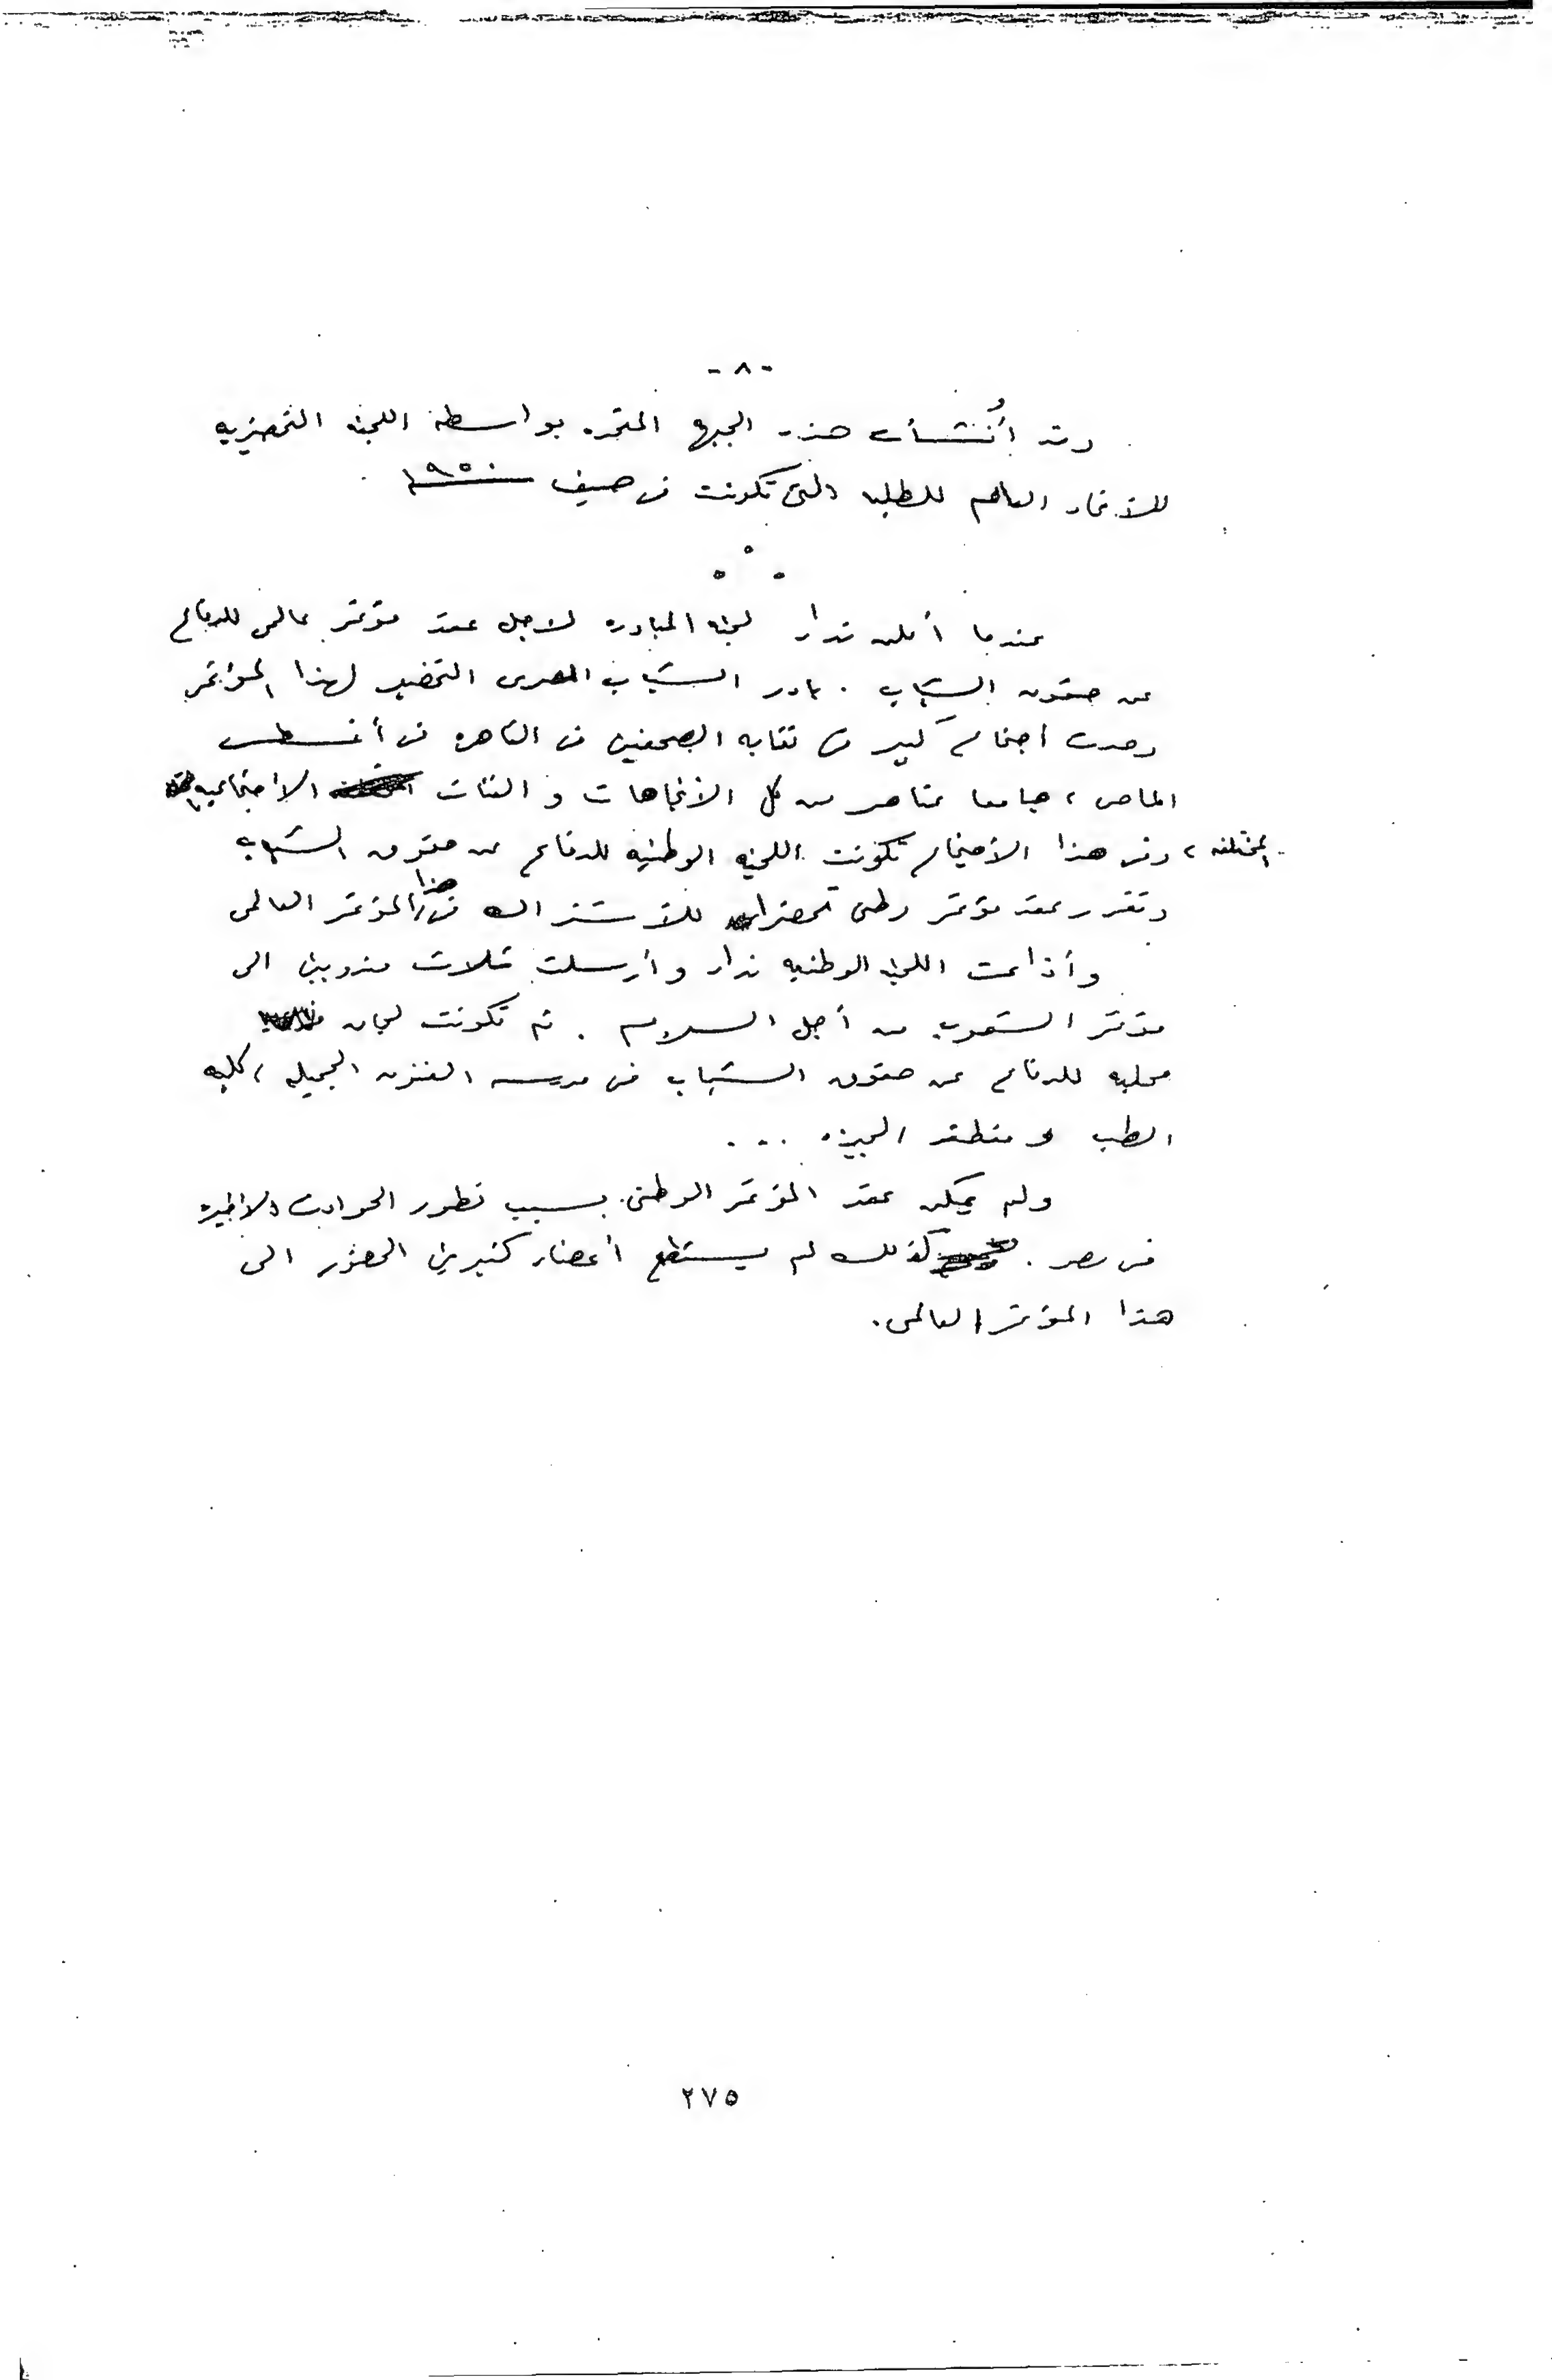 - ٨ -
وقد أُنشأت هذه الجبهه المتحده بواسطة اللجنه التحضيريه
للأتحاد العام للطلبه والتى تكونت فى صيف ١٩٥٠
عندما أعلن نداء لجنه المبادره لاجل عقد مؤتمر عالمى للدفاع
عن حقوق الشباب . بادر الشباب المصرى التحضير لهذا المؤتمر
وحدث اجتماع كبير فى نقابه الصحفيين فى القاهره فى أغسطس
الماضى ، جامعا عناصر من كل الأتجاهات و الفئات الاجتماعيه
المختلفه ، وفى هذا الأجتماع تكونت اللجنه الوطنيه للدفاع عن حقوق الشباب
وتقرر عقد مؤتمر وطنى تحضيرا للأشتراك فى هذا المؤتمر العالمى
وأذاعت اللجنه الوطنيه نداء وأرسلت ثلاث مندوبين الى
مؤتمر الشعوب من أجل السلام . ثم تكونت لجان
محليه للدفاع عن حقوق الشباب فى مدرسه الفنون الجميله ، كليه
الطب و منطقه الجيزه ...
ولم يمكن عقد المؤتمر الوطنى بسبب تطور الحوادث الأخيره
فى مصر . كذلك لم يستطع أعضاء كثيرين الحضور الى
هذا المؤتمر العالمى .
٢٧٥